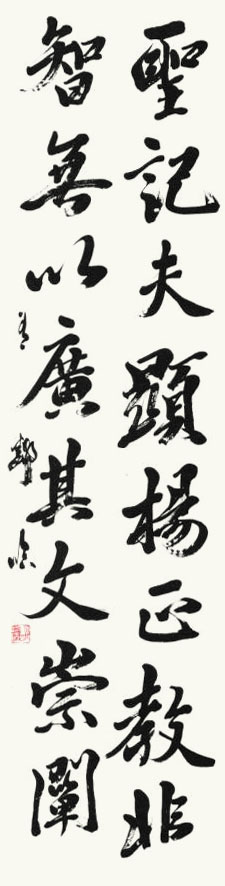 聖記夫顯楊正教非
智無以廣其文崇闡